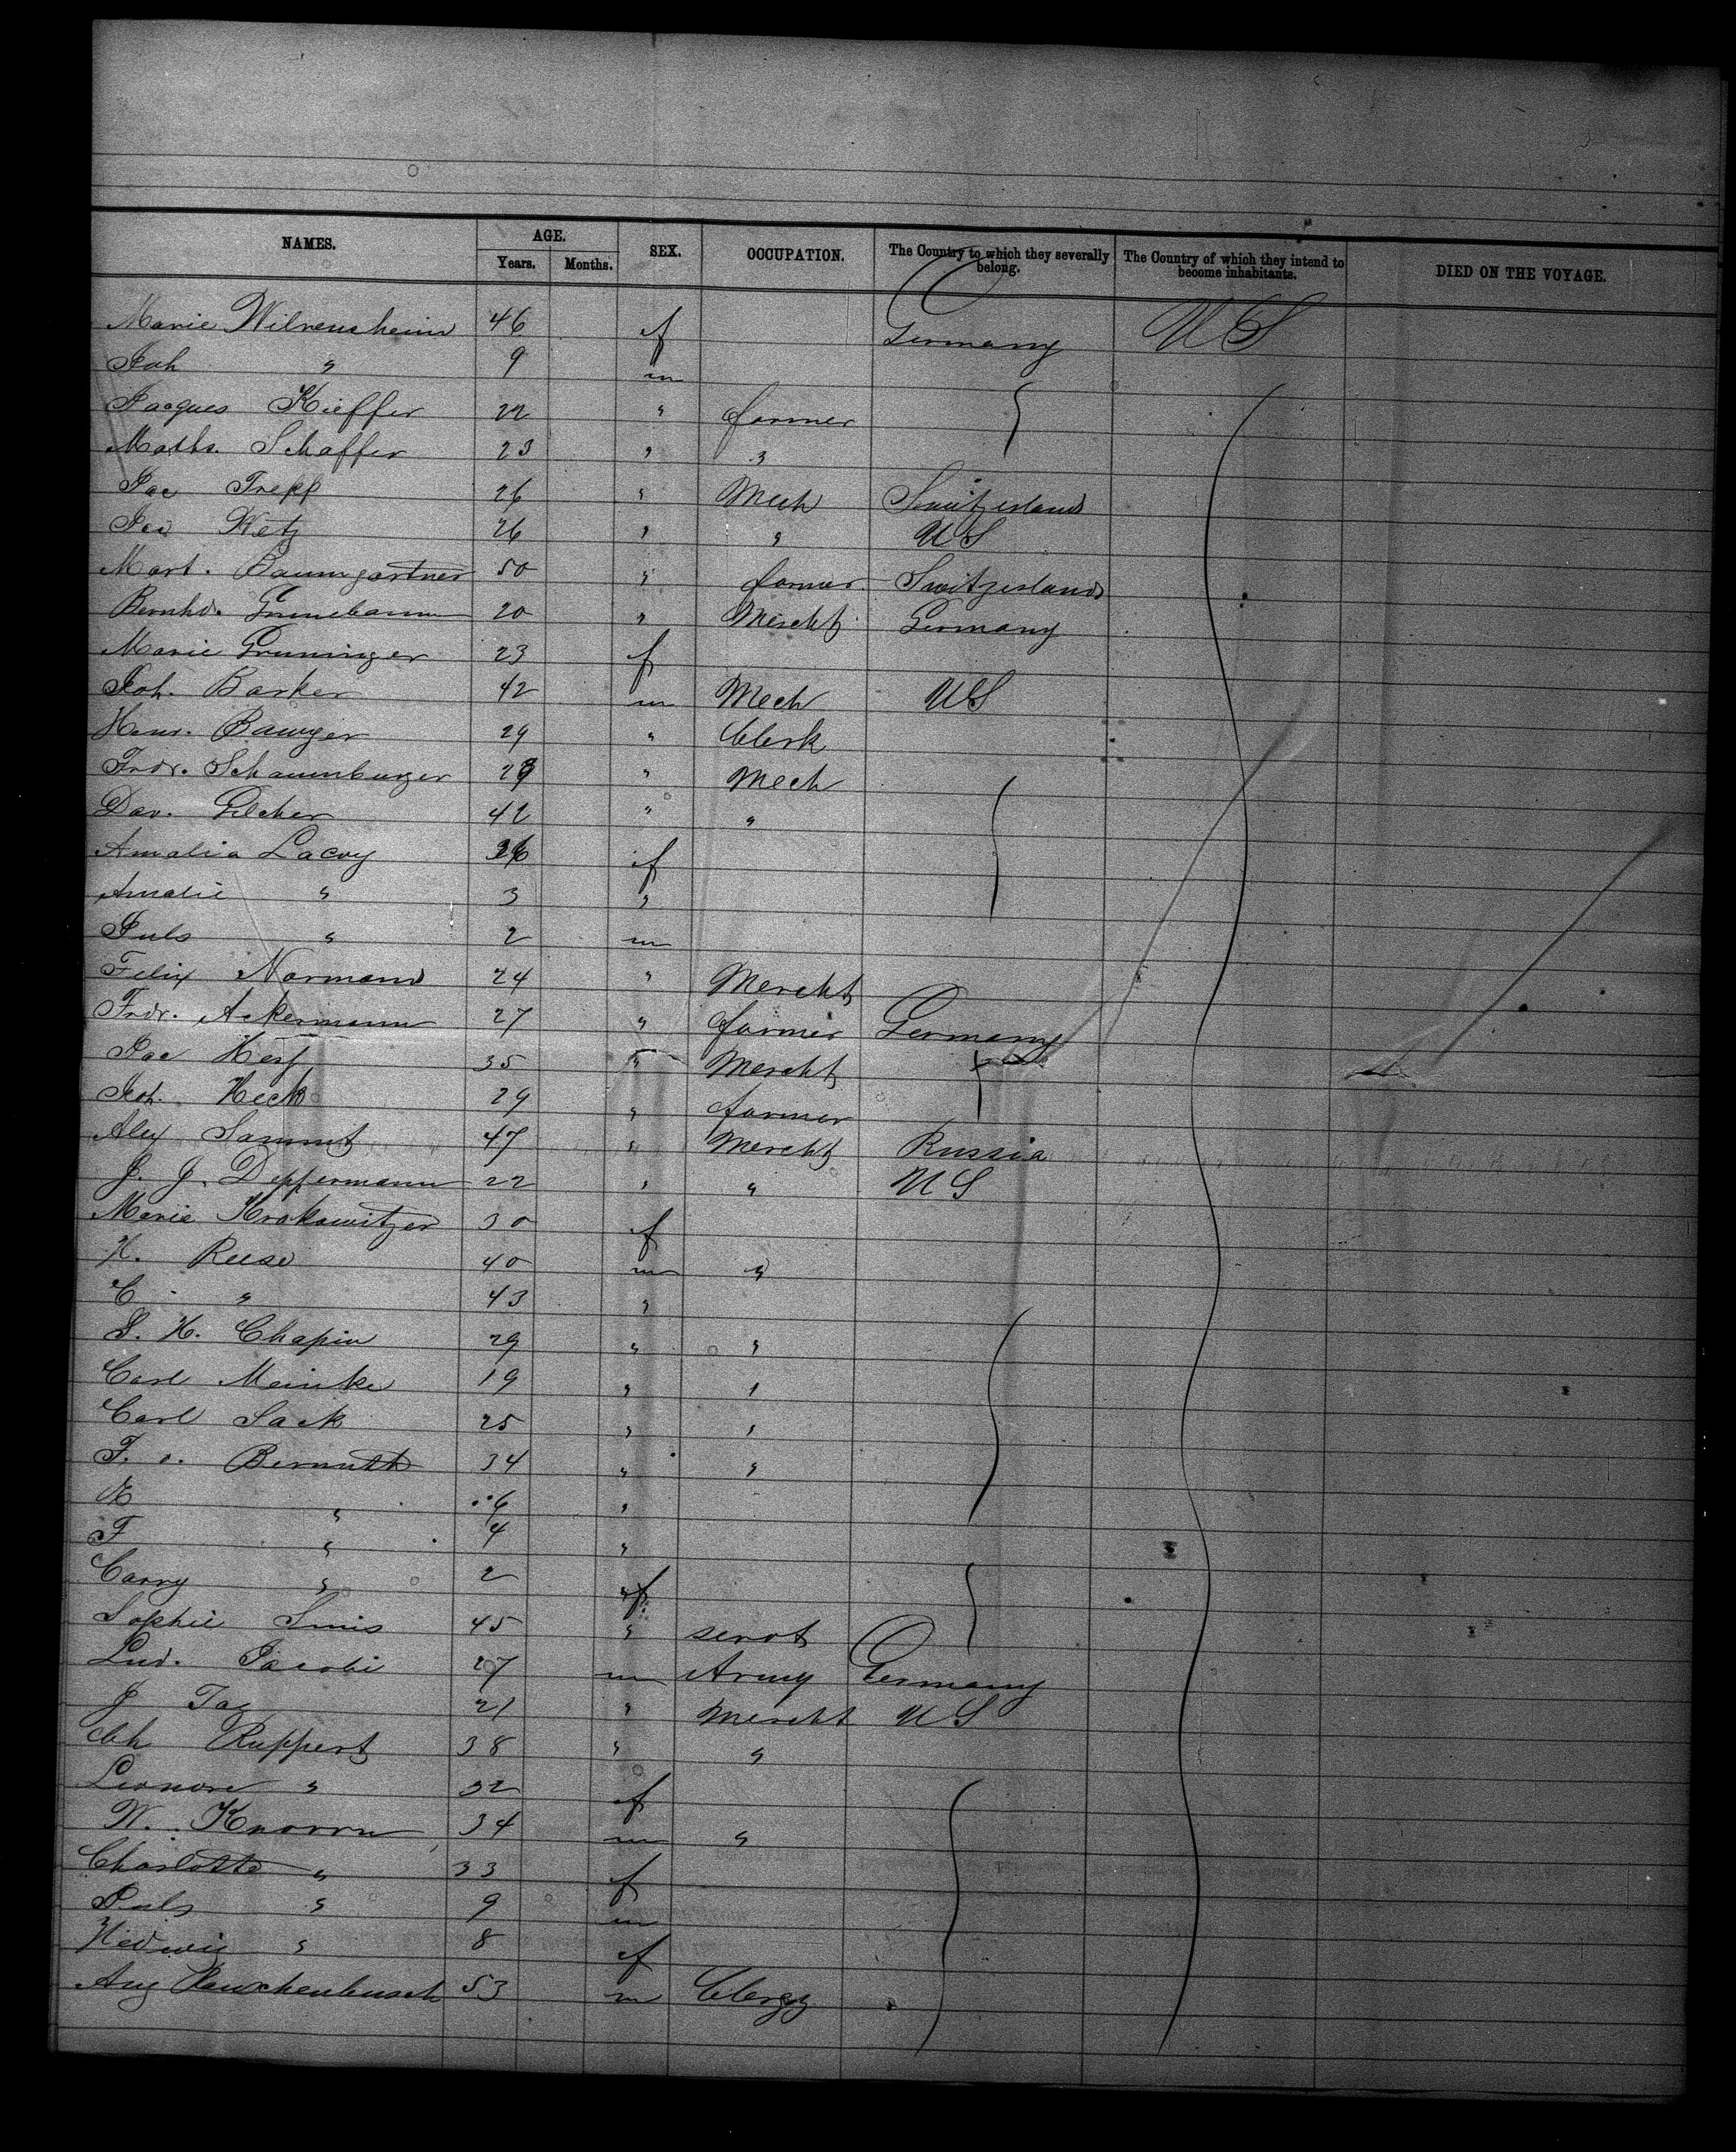 NAMES. AGE. SEX. OCCUPATION. The Country to which they severally belong. The Country of which they intend to become inhabitants. DIED ON THE VOYAGE.
Years. Months.
Marie Wilvensheim 46 f Germany US
Joh " 9 m
Jacques Kieffer 22 " farmer
Math. Schaffer 23 " "
Jac Trepp 26 " Mech Switzerland
Jac Wetz 26 " " US
Mart. Baumgartner 50 " farmer Switzerland
Bernhd. Grunebaum 20 " Mercht Germany
Marie Gruninger 23 f
Joh. Barker 42 m Mech US
Henr. 29 " Clerk
Frdr. Schaumburger " Mech
Dav. Pilcher 42 " "
Amalia Lacoy f
Amalie " 3 "
Juls " 2 m
Felix Normand 24 " Mercht
Frdr. Ackermann 27 " farmer Germany
Jac 35 " Mercht
Joh. Heck 29 " farmer
Alex Sammt 47 " Mercht Russia
J. J. Deppermann 22 " " US
Marie Krakowitzer 30 f
H. Reese 40 m "
C. " 43 "
S. H. Chapin 29 " "
Carl Meinke 19 " "
Carl Sack 25 " "
F. v. Bernuth 34 " "
" 6 "
F " 4 "
Carry " 2 f
Sophie 45 " servt
Lud. Jacobi 27 m Army Germany
J Tag 21 " Mercht US
Ruppert 38 " "
Leonore " 32 f
W. Knorrn 34 m "
Charlotte " 33 f
Juls " 9 m
Hedwig " 8 f
Aug Rauschenbusch 53 m Clergy